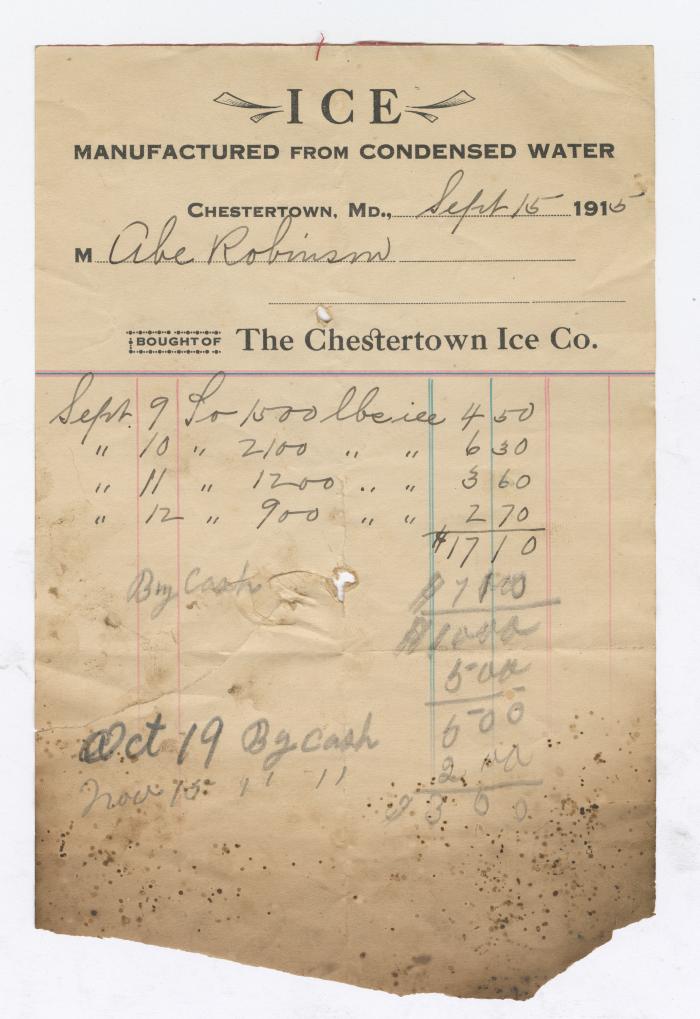 ICE
MANUFACTURED FROM CONDENSED WATER
CHESTERTOWN, MD., Sept 15 1915
M Abe Robinson
BOUGHT OF The Chestertown Ice Co.
Sept 9 To 1500 lbs ice 4 50
" 10 " 2100 " " 6 30
" 11 " 1200 " " 3 60
" 12 " 900 " " 2 70
$17 10
By Cash $7 10
$10 00
5 00
Oct 19 By cash 5 00
2 00
Nov 15 " " $3 00